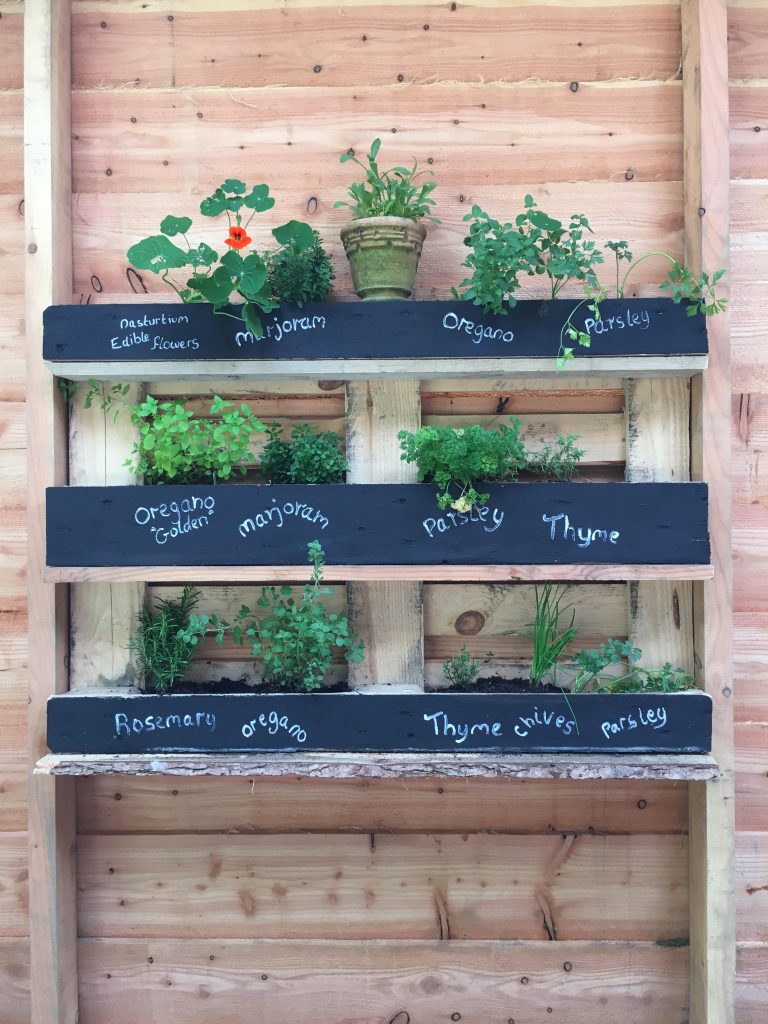 Nasturtium
Edible flowers
marjoram
Oregano
Parsley
Oregano
"Golden"
marjoram
Parsley
Thyme
Rosemary
oregano
Thyme
chives
parsley